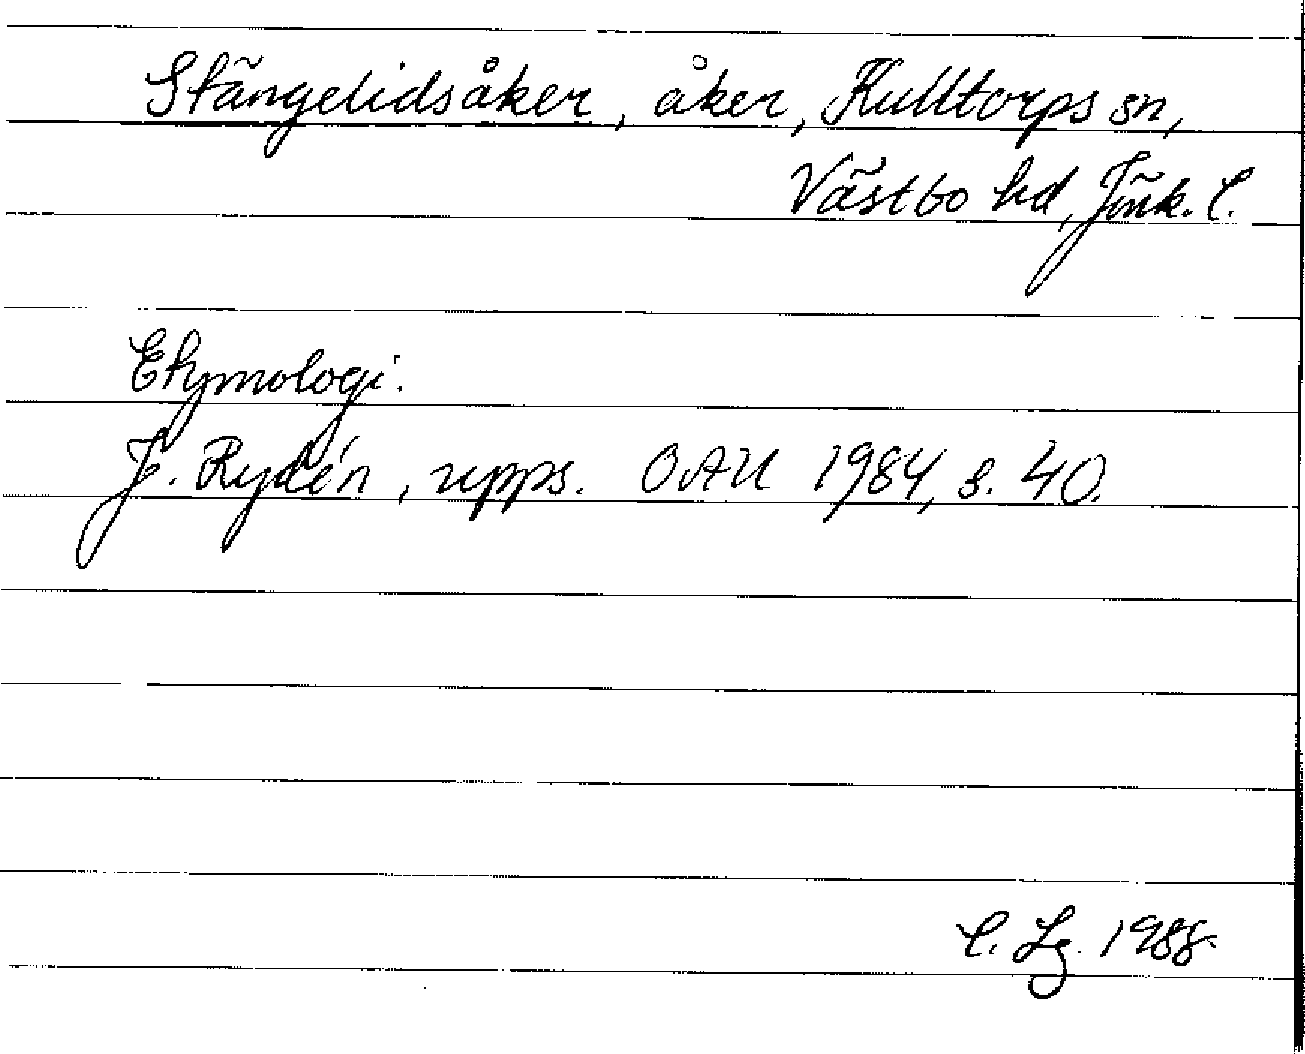 Stängelidsåker, åker, Kulltorps sn,
Västbo hd, Jönk. l.
Etymologi:
J. Rydén, upps. OAU 1984, s. 40.
C. Lg. 1988.